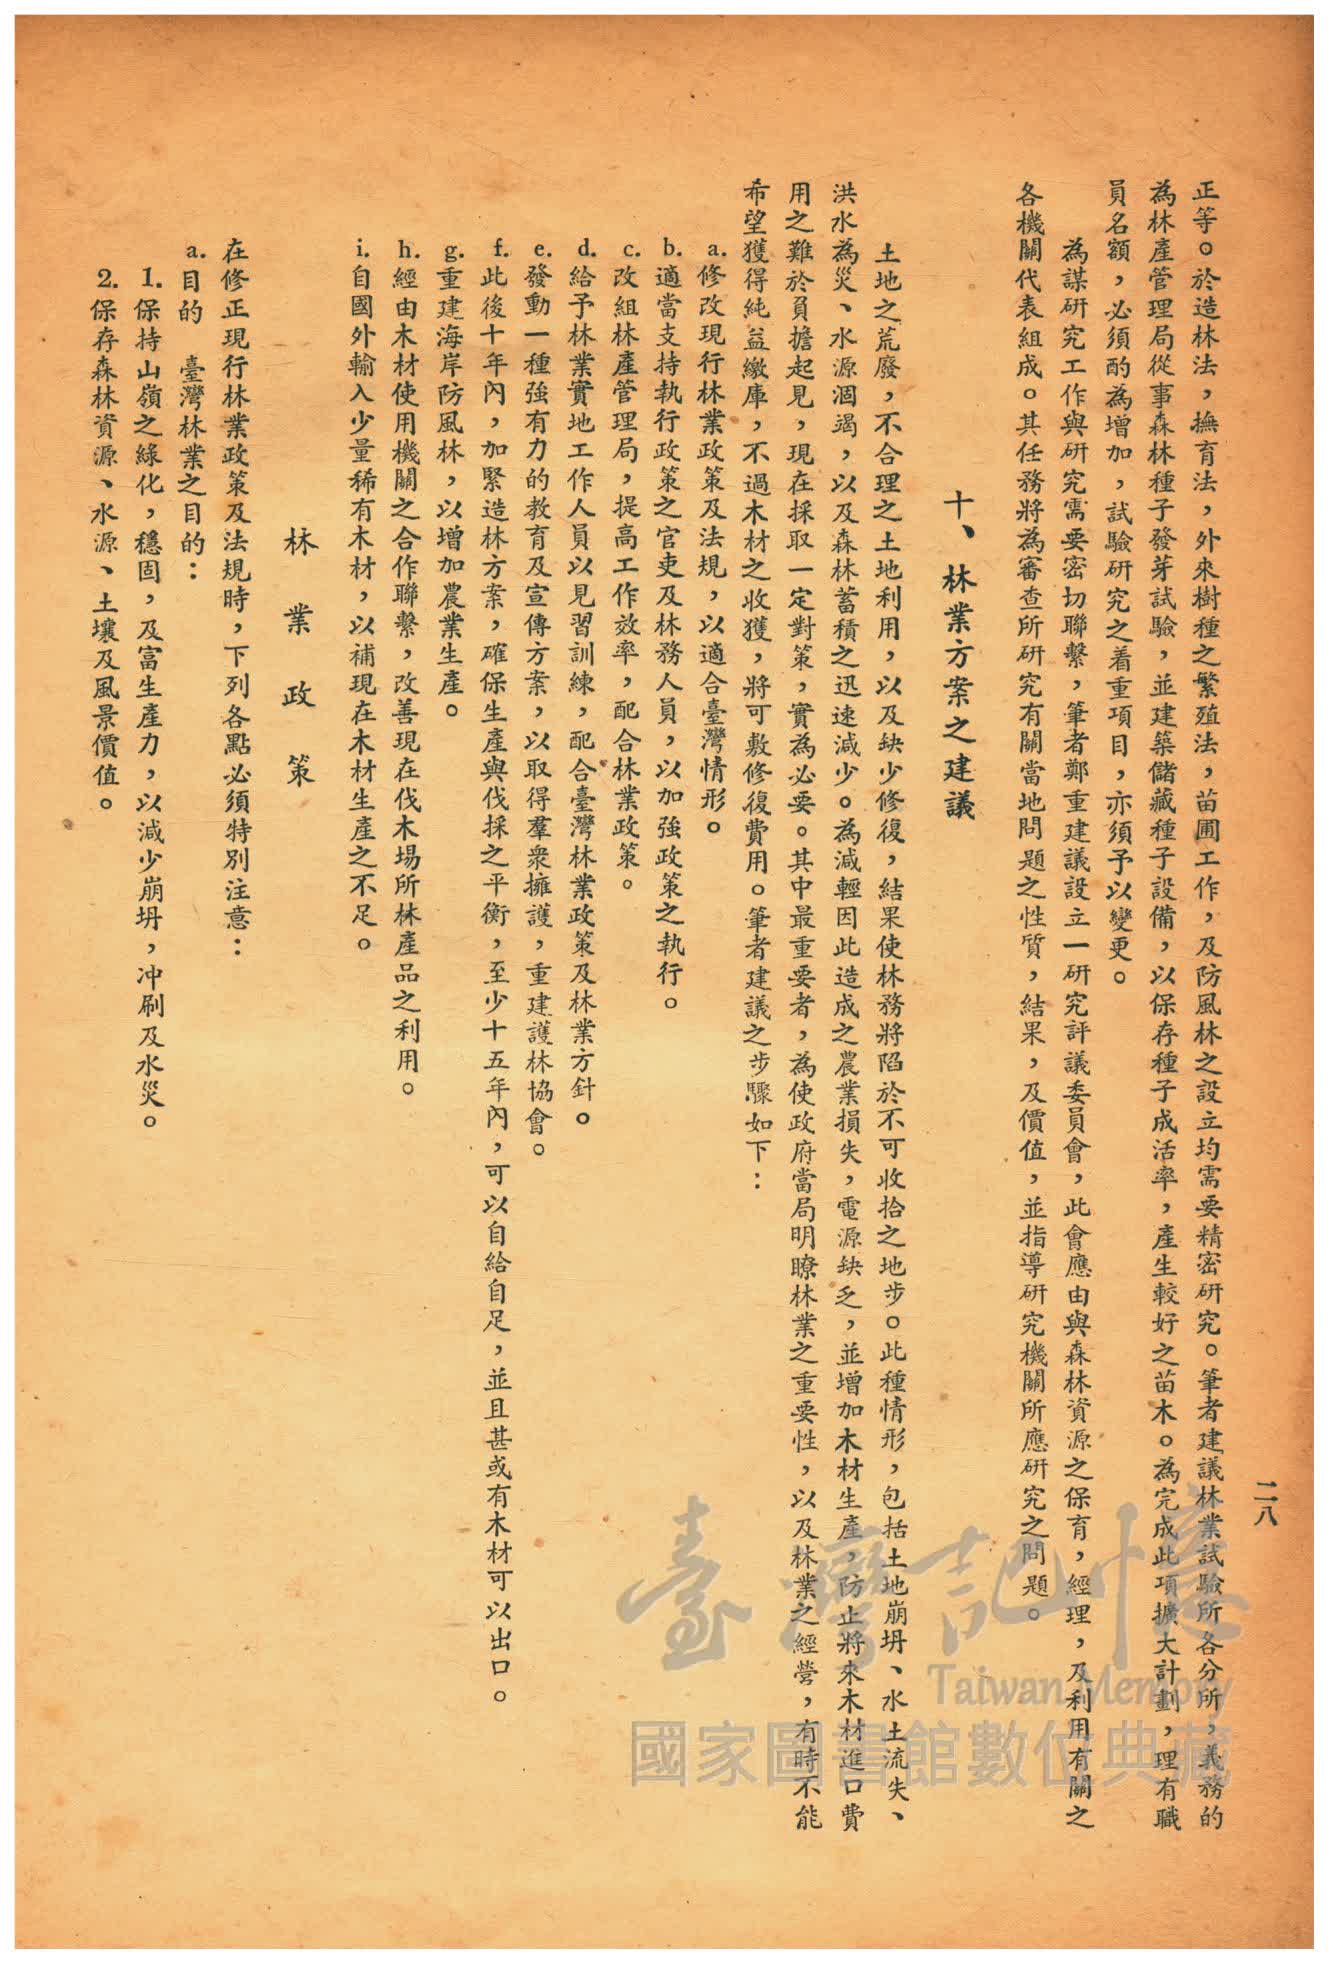 二八
正等。於造林法，撫育法，外來樹種之繁殖法，苗圃工作，及防風林之設立均需要精密研究。筆者建議林業試驗所各分所，義務的
為林產管理局從事森林種子發芽試驗，並建築儲藏種子設備，以保存種子成活率，產生較好之苗木。為完成此項擴大計劃，理有職
員名額，必須酌為增加，試驗研究之着重項目，亦須予以變更。
為謀研究工作與研究需要密切聯繫，筆者鄭重建議設立一研究評議委員會，此會應由與森林資源之保育，經理，及利用有關之
各機關代表組成。其任務將為審查所研究有關當地問題之性質，結果，及價值，並指導研究機關所應研究之問題。
十、林業方案之建議
土地之荒廢，不合理之土地利用，以及缺少修復，結果使林務將陷於不可收拾之地步。此種情形，包括土地崩坍、水土流失、
洪水為災、水源涸竭，以及森林蓄積之迅速減少。為減輕因此造成之農業損失，電源缺乏，並增加木材生產，防止將來木材進口費
用之難於負擔起見，現在採取一定對策，實為必要。其中最重要者，為使政府當局明瞭林業之重要性，以及林業之經營，有時不能
希望獲得純益繳庫，不過木材之收獲，將可敷修復費用。筆者建議之步驟如下：
a. 修改現行林業政策及法規，以適合臺灣情形。
b. 適當支持執行政策之官吏及林務人員，以加強政策之執行。
c. 改組林產管理局，提高工作效率，配合林業政策。
d. 給予林業實地工作人員以見習訓練，配合臺灣林業政策及林業方針。
e. 發動一種強有力的教育及宣傳方案，以取得羣衆擁護，重建護林協會。
f. 此後十年內，加緊造林方案，確保生產與伐採之平衡，至少十五年內，可以自給自足，並且甚或有木材可以出口。
g. 重建海岸防風林，以增加農業生產。
h. 經由木材使用機關之合作聯繫，改善現在伐木場所林產品之利用。
i. 自國外輸入少量稀有木材，以補現在木材生產之不足。
林業政策
在修正現行林業政策及法規時，下列各點必須特別注意：
a. 目的 臺灣林業之目的：
1. 保持山嶺之綠化，穩固，及富生產力，以減少崩坍，冲刷及水災。
2. 保存森林資源、水源、土壤及風景價值。
臺灣記憶
Taiwan Memory
國家圖書館數位典藏